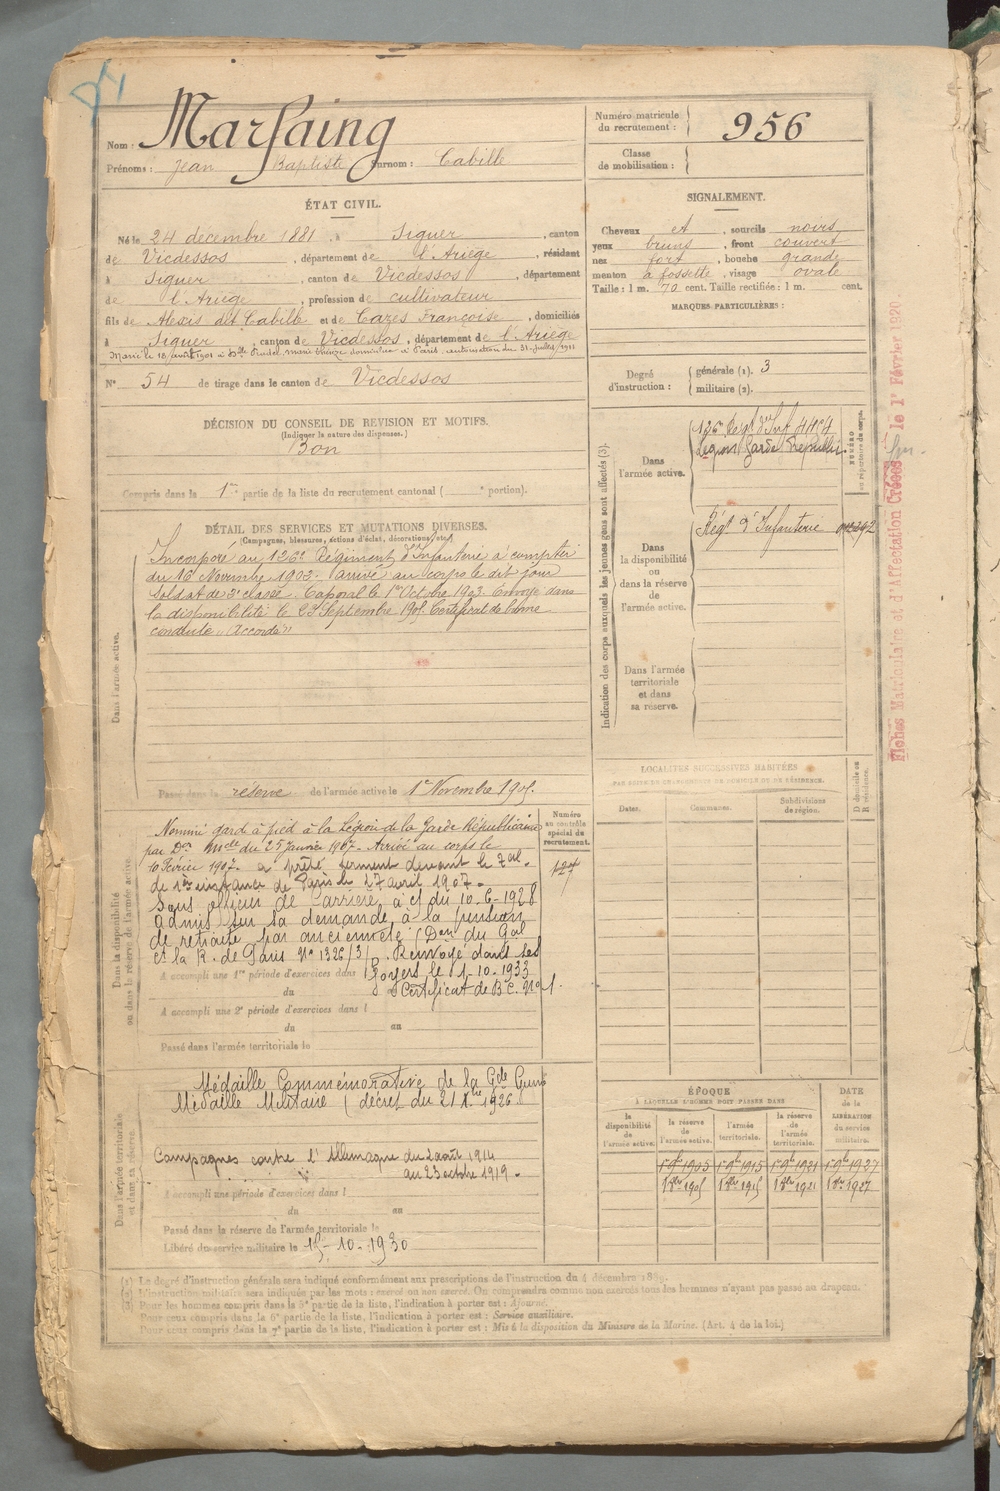 Nom : Marfaing
Prénoms : Jean Baptiste Surnom : Cabille
Numéro matricule du recrutement : 956
Classe de mobilisation :
ÉTAT CIVIL.
Né le 24 décembre 1881, à Siguer, canton
de Vicdessos, département de l'Ariège, résidant
à Siguer, canton de Vicdessos, département
de l'Ariège, profession de cultivateur
fils de Alexis dit Cabille et de Cazes Françoise, domiciliés
à Siguer, canton de Vicdessos, département de l'Ariège
Marié le 18 avril à Dlle marie domiciliée à Paris, autorisation du 31 juillet 1911
N° 54 de tirage dans le canton de Vicdessos
SIGNALEMENT.
Cheveux et, sourcils noirs
yeux bruns, front couvert
nez fort, bouche grande
menton à fossette, visage ovale
Taille : 1 m. 70 cent. Taille rectifiée : 1 m. cent.
MARQUES PARTICULIÈRES :
Degré d'instruction : générale (1). 3
militaire (2).
DÉCISION DU CONSEIL DE REVISION ET MOTIFS.
(Indiquer la nature des dispenses.)
Bon
Compris dans la 1re partie de la liste du recrutement cantonal ( e portion).
DÉTAIL DES SERVICES ET MUTATIONS DIVERSES.
(Campagnes, blessures, actions d'éclat, décorations, etc.)
Dans l'armée active.
Incorporé au 126e Régiment d'Infanterie à compter
du 16 Novembre 1902. Arrivé au corps le dit jour
soldat de 2e classe. Caporal le 1er Octobre 1903. Envoyé dans
la disponibilité le 23 Septembre 1905. Certificat de bonne
conduite "Accordé"
Passé dans la réserve de l'armée active le 1er Novembre 1905.
Indication des corps auxquels les jeunes gens sont affectés (3).
Dans l'armée active.
126e Regt d'Inf
Légion Garde Républic.
NUMÉRO au répertoire du corps.
Dans la disponibilité ou dans la réserve de l'armée active.
Régt d'Infanterie
Dans l'armée territoriale et dans sa réserve.
Fiches Matriculaire et d'Affectation Créées le 1er Février 1920.
LOCALITÉS SUCCESSIVES HABITÉES
PAR SUITE DE CHANGEMENTS DE DOMICILE OU DE RÉSIDENCE.
Dates.
Communes.
Subdivisions de région.
D domicile ou R résidence.
Dans la disponibilité ou dans la réserve de l'armée active
Numéro au contrôle spécial du recrutement.
127
Nommé garde à pied à la Légion de la Garde Républicaine
par Don Mlle du 25 Janvier 1907. Arrivé au corps le
10 Février 1907. a prêté serment devant le
de 1re instance de Paris le 27 avril 1907.
Sous officier de carrière à c/ du 10-6-1928
Admis sur sa demande à la pension
de retraite par ancienneté (Don du Gal
Ct la R. de Paris N° 1326/3/. Renvoyé dans ses
foyers le 1-10-1933
Certificat de B. C. N° 1.
A accompli une 1re période d'exercices dans l
du au
A accompli une 2e période d'exercices dans l
du au
Passé dans l'armée territoriale le
Dans l'armée territoriale et dans sa réserve.
Médaille Commémorative de la Gde Guerre
Médaille Militaire (décret du 21 Xbre 1926
Campagnes contre l'Allemagne du 2 août 1914
au 23 octobre 1919.
A accompli une période d'exercices dans l
du au
Passé dans la réserve de l'armée territoriale le
Libéré du service militaire le 15-10-1930
ÉPOQUE
À LAQUELLE L'HOMME DOIT PASSER DANS
DATE de la LIBÉRATION du service militaire.
la disponibilité de l'armée active.
la réserve de l'armée active.
l'armée territoriale.
la réserve de l'armée territoriale.
1r 9bre 1905 1r 9bre 1915 1r 9bre 1921 1r 9bre 1927
1r 9bre 1905 1r 9bre 1915 1r 9bre 1921 1r 9bre 1927
(1) Le degré d'instruction générale sera indiqué conformément aux prescriptions de l'instruction du 4 décembre 1889.
(2) L'instruction militaire sera indiquée par les mots : exercé ou non exercé. On comprendra comme non exercés tous les hommes n'ayant pas passé au drapeau.
(3) Pour les hommes compris dans la 5e partie de la liste, l'indication à porter est : Ajourné.
Pour ceux compris dans la 6e partie de la liste, l'indication à porter est : Service auxiliaire.
Pour ceux compris dans la 7e partie de la liste, l'indication à porter est : Mis à la disposition du Ministre de la Marine. (Art. 4 de la loi.)